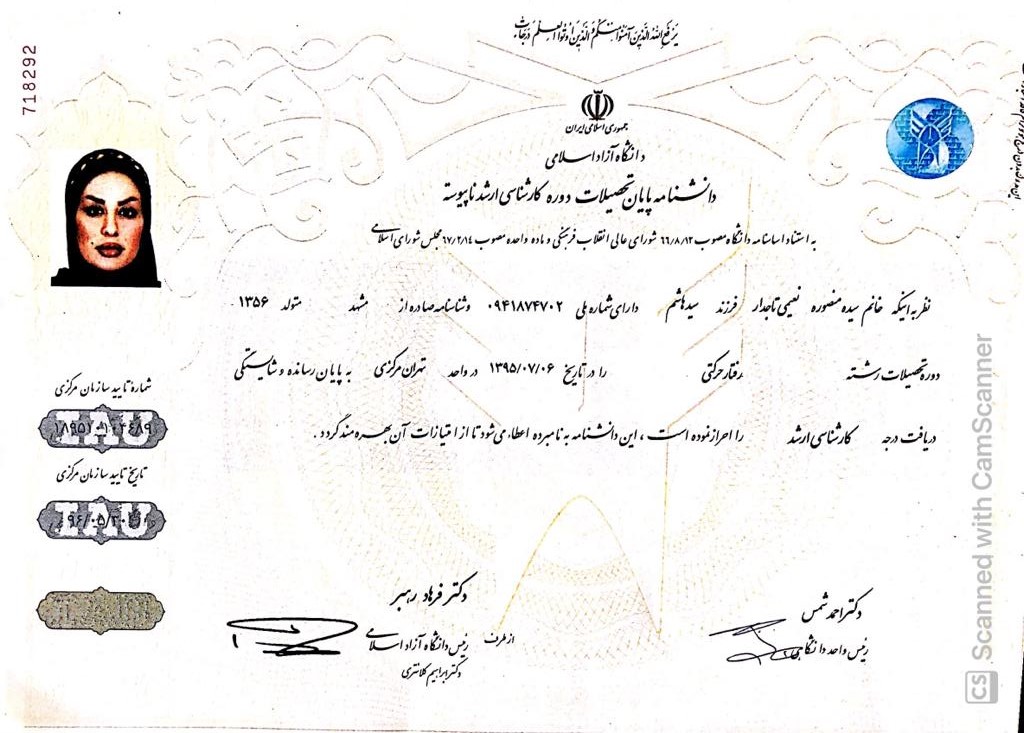 یرفع الله الذین آمنوا منکم و الذین اوتوا العلم درجات
718292
جمهوری اسلامی ایران
دانشگاه آزاد اسلامی
دانشنامه پایان تحصیلات دوره کارشناسی ارشد ناپیوسته
به استناد اساسنامه دانشگاه مصوب ۶۶/۸/۱۲ شورای عالی انقلاب فرهنگی و ماده واحده مصوب ۶۷/۲/۱۴ مجلس شورای اسلامی
نظر به اینکه خانم سیده منصوره نعیمی تاجدار فرزند سید هاشم دارای شماره ملی ۰۹۴۱۸۷۴۷۰۲ و شناسنامه صادره از مشهد متولد ۱۳۵۶
دوره تحصیلات رشته رفتار حرکتی را در تاریخ ۱۳۹۵/۰۷/۰۶ در واحد تهران مرکزی به پایان رسانده و شایستگی
دریافت درجه کارشناسی ارشد را احراز نموده است ، این دانشنامه به نامبرده اعطاء می شود تا از امتیازات آن بهره مند گردد .
شماره تایید سازمان مرکزی
IAU
تاریخ تایید سازمان مرکزی
IAU
۹۶/۰۵/۳۰
دکتر احمد شمس
رئیس واحد دانشگاهی
دکتر فرهاد رهبر
از طرف رئیس دانشگاه آزاد اسلامی
دکتر ابراهیم کلانتری
CS Scanned with CamScanner